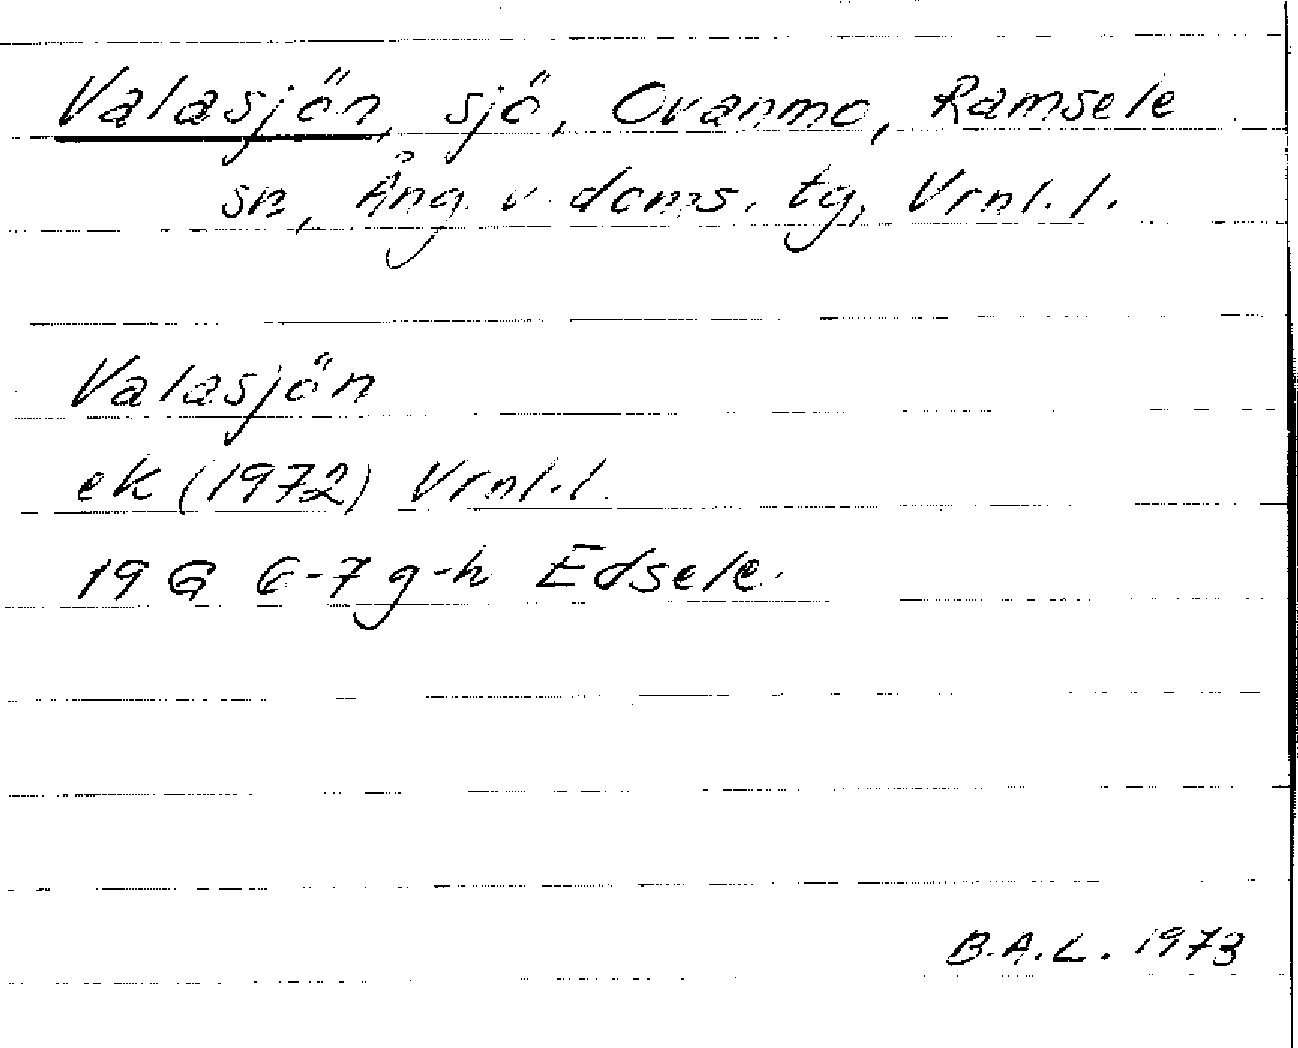 Valasjön, sjö, Ovanmo, Ramsele
sn, Ång. v. doms. tg, Vrnl. l.
Valasjön
ek (1972) Vrnl.l.
19 G 6-7 g-h Edsele.
B.A.L. 1973